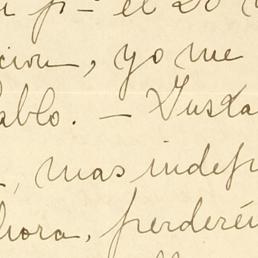 el 20
cion, yo me
ablo. — Gusta
, mas indep
hora, perderé